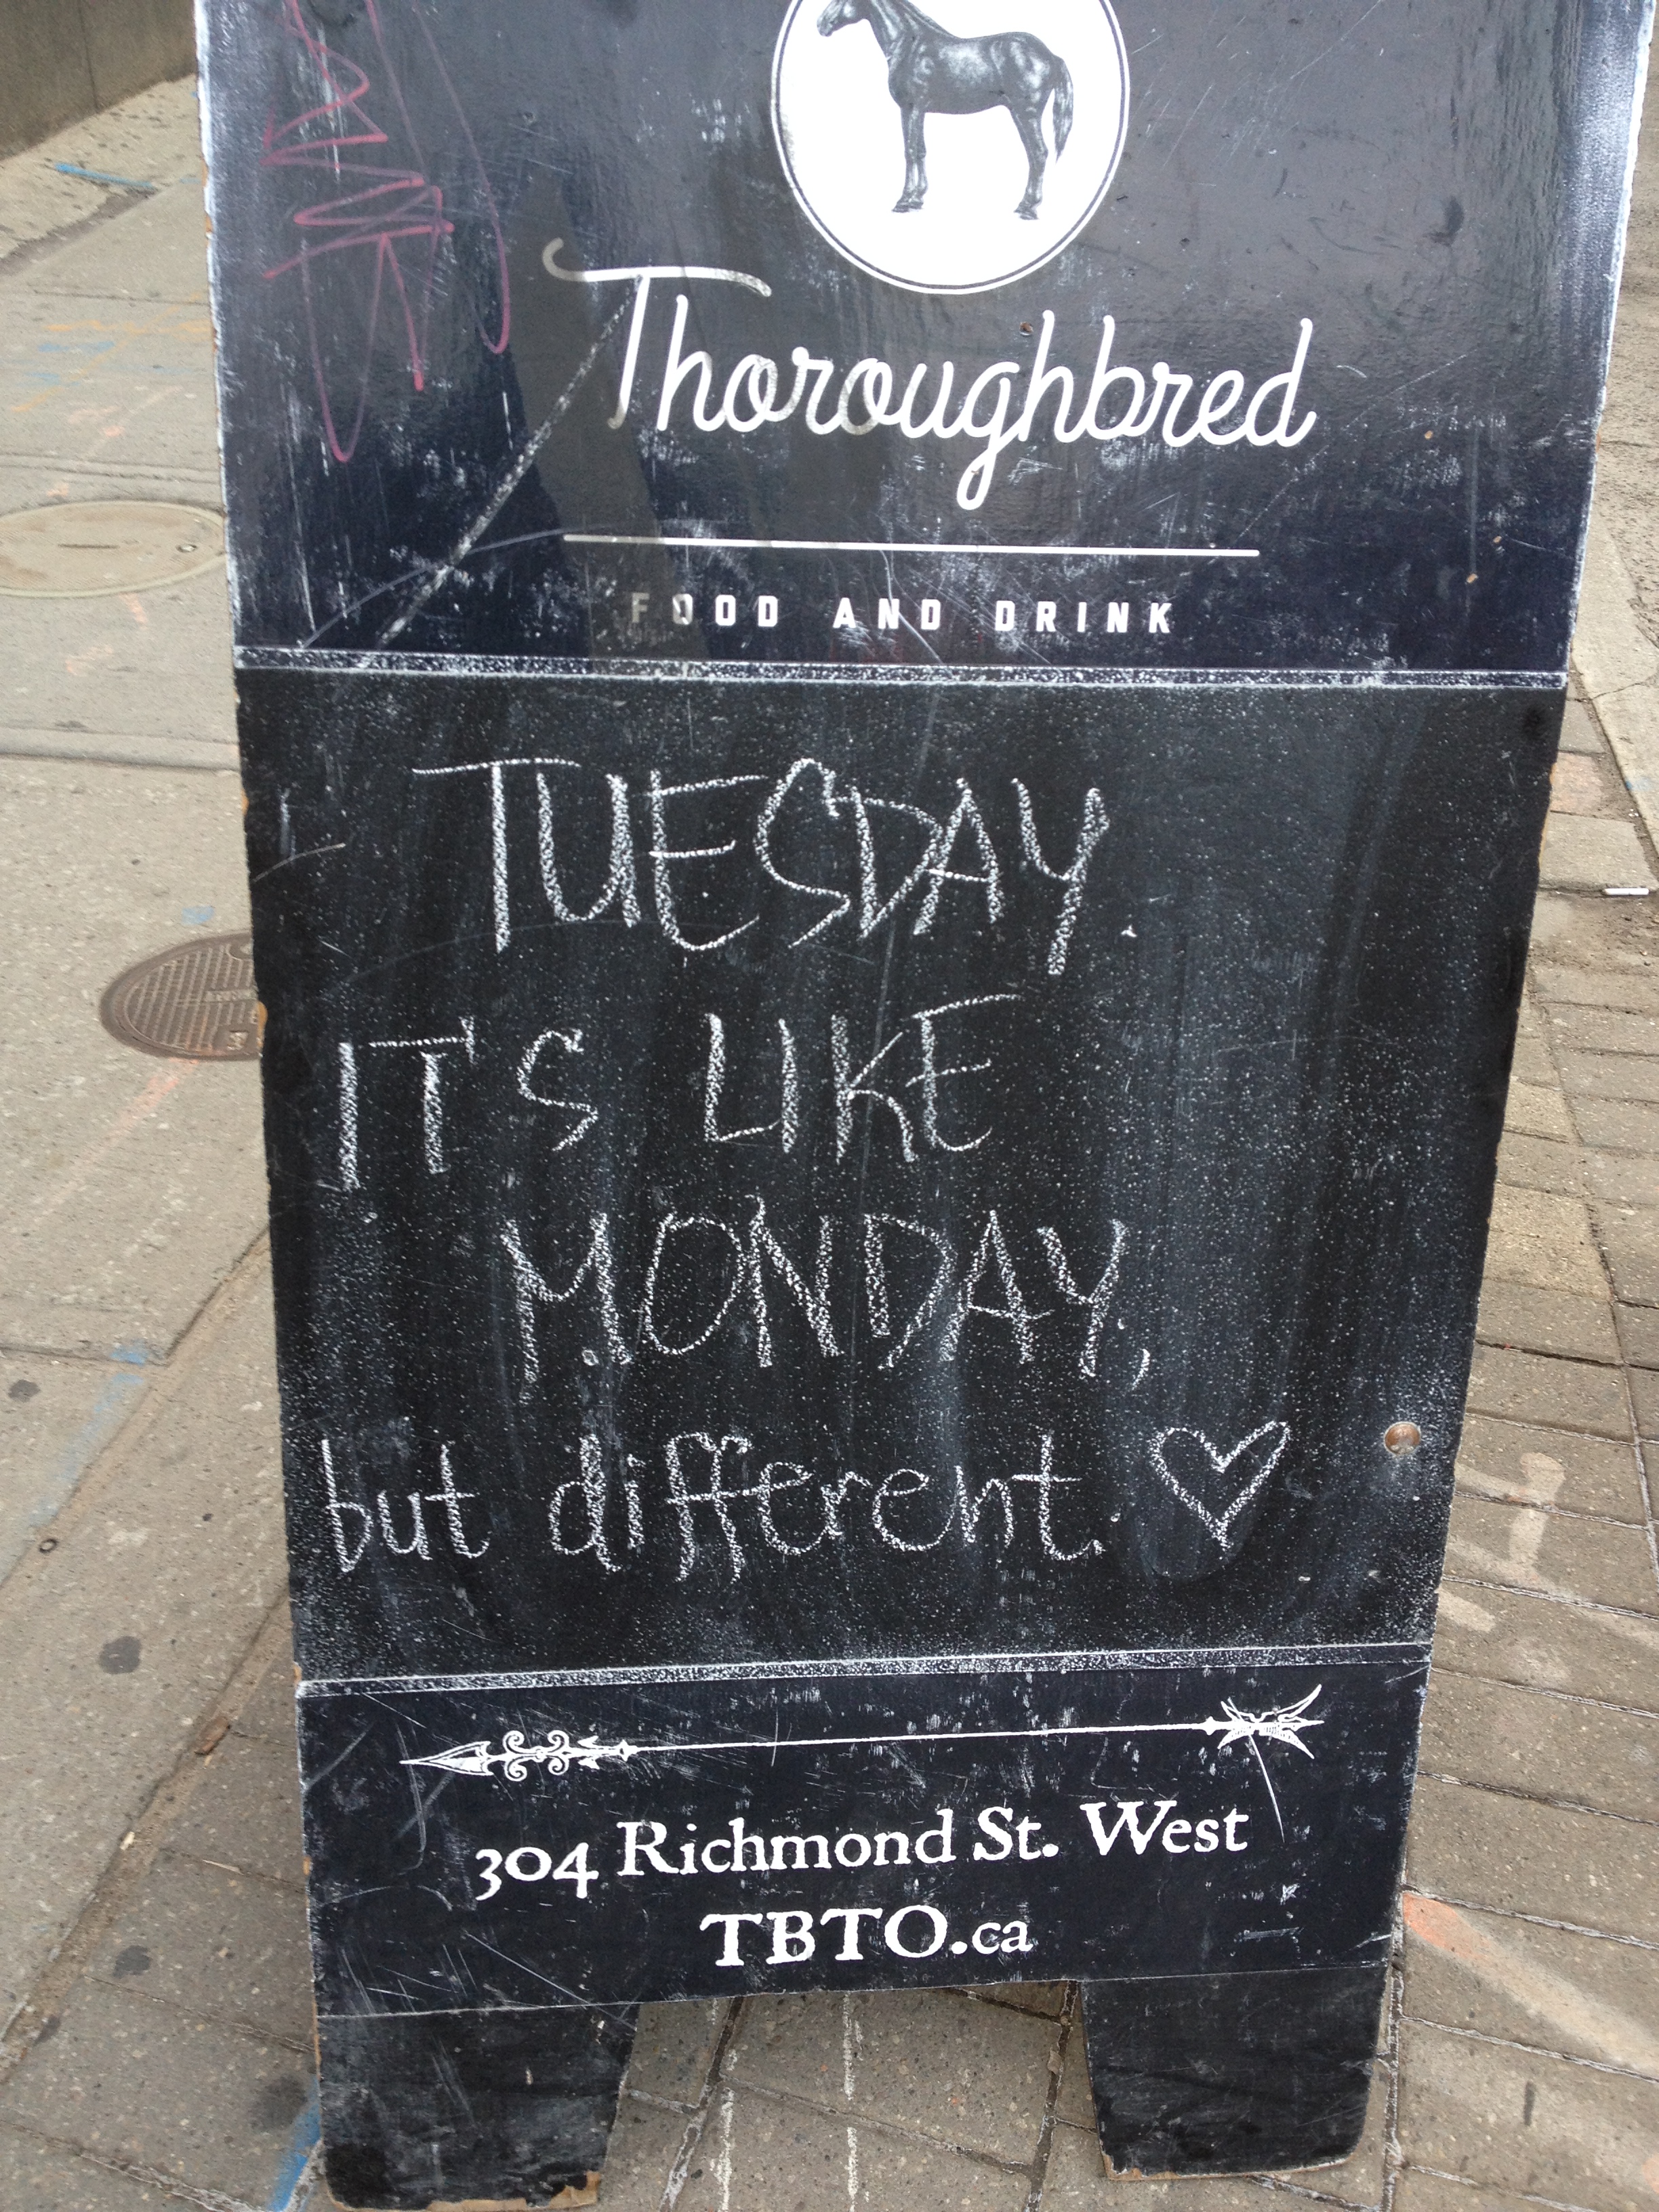 Thoroughbred
FOOD AND DRINK
TUESDAY.
IT'S LIKE
MONDAY,
but different. ♡
304 Richmond St. West
TBTO.ca